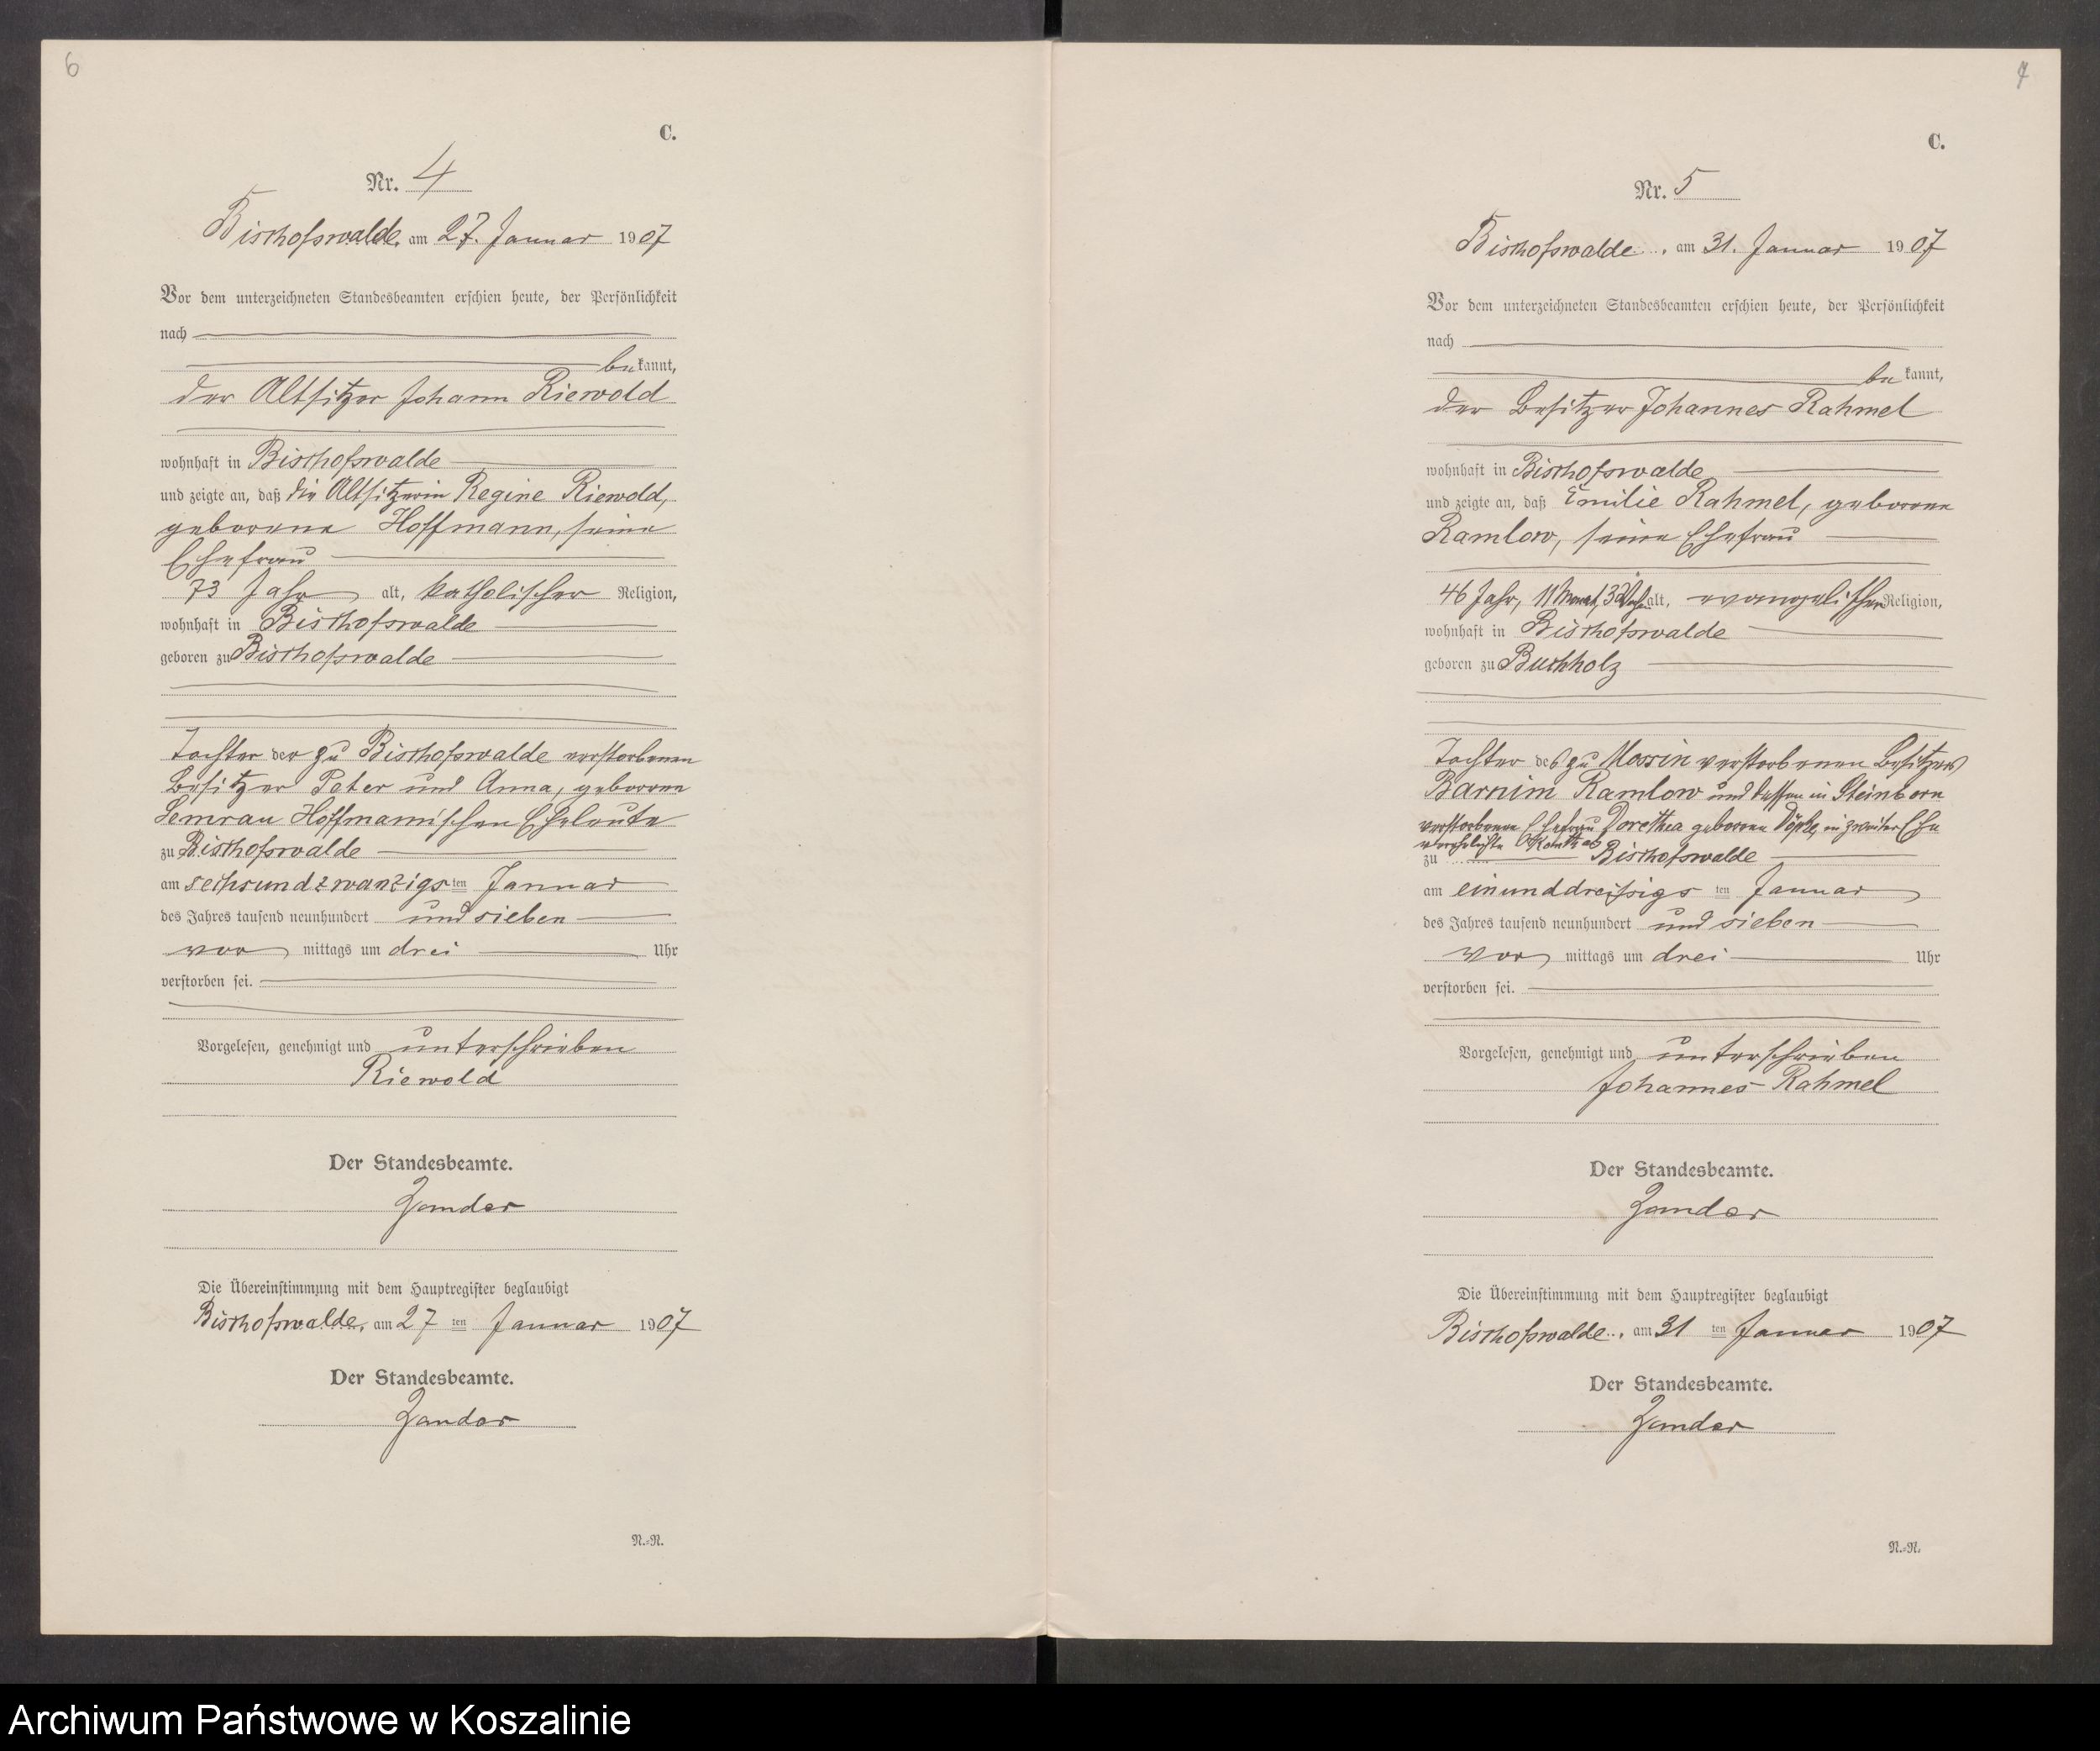 6
C.
Nr. 4
Bischofswalde, am 27. Januar 1907
Vor dem unterzeichneten Standesbeamten erschien heute, der Persönlichkeit
nach
bekannt,
der Altsitzer Johann Riewold
wohnhaft in Bischofswalde
und zeigte an, daß die Altsitzerin Regine Riewold,
geborene Hoffmann, seine
Ehefrau
73 Jahr alt, katholischer Religion,
wohnhaft in Bischofswalde
geboren zu Bischofswalde
Tochter der zu Bischofswalde verstorbenen
Besitzer Peter und Anna, geborene
Semrau Hoffmannischen Eheleute
zu Bischofswalde
am sechsundzwanzigsten Januar
des Jahres tausend neunhundert und sieben
vor mittags um drei Uhr
verstorben sei.
Vorgelesen, genehmigt und unterschrieben
Riewold
Der Standesbeamte.
Zander
Die Übereinstimmung mit dem Hauptregister beglaubigt
Bischofswalde, am 27 ten Januar 1907
Der Standesbeamte.
Zander
N.-N.
7
C.
Nr. 5
Bischofswalde, am 31. Januar 1907
Vor dem unterzeichneten Standesbeamten erschien heute, der Persönlichkeit
nach
bekannt,
der Besitzer Johannes Rahmel
wohnhaft in Bischofswalde
und zeigte an, daß Emilie Rahmel, geborene
Ramlow, seine Ehefrau
46 Jahr, 11 Monat, 3 alt, evangelischer Religion,
wohnhaft in Bischofswalde
geboren zu Buchholz
Tochter des zu Mossin verstorbenen Besitzers
Barnim Ramlow und dessen in Steinborn
verstorbenen Ehefrau Dorethea geborene Döpke, in zweiter Ehe
verehelichte
zu Bischofswalde
am einunddreißigs ten Januar
des Jahres tausend neunhundert und sieben
vor mittags um drei Uhr
verstorben sei.
Vorgelesen, genehmigt und unterschrieben
Johannes Rahmel
Der Standesbeamte.
Zander
Die Übereinstimmung mit dem Hauptregister beglaubigt
Bischofswalde, am 31 ten Januar 1907
Der Standesbeamte.
Zander
N.-N.
Archiwum Państwowe w Koszalinie